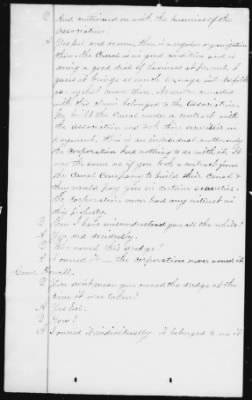 Q And entrusted on with the business of the
Association.
A Yes sir and owns, there is a regular organization
there. The Canal is in good condition and is
doing a good deal of business at present. I
guess it brings as much tonnage into Norfolk
as, if not more than. No matter connected
with this claim belonged to the Association.
We built the Canal under a contract with
the Association and took their securities in
payment, this is an individual matter and
the Corporation had nothing to do with it. It
was the same as if you took a contract from
the Canal Company to build their Canal &
they would pay you in certain securities.
The Corporation never had any interest in
this property.
Q Then I have misunderstood you all the while?
A You did decidedly.
Q Who owned this dredge?
A I owned it — the Corporation never owned it
Q You don't mean you owned the dredge at the
time it was taken?
A Yes Sir.
Q You?
A I owned it individually. It belonged to me if